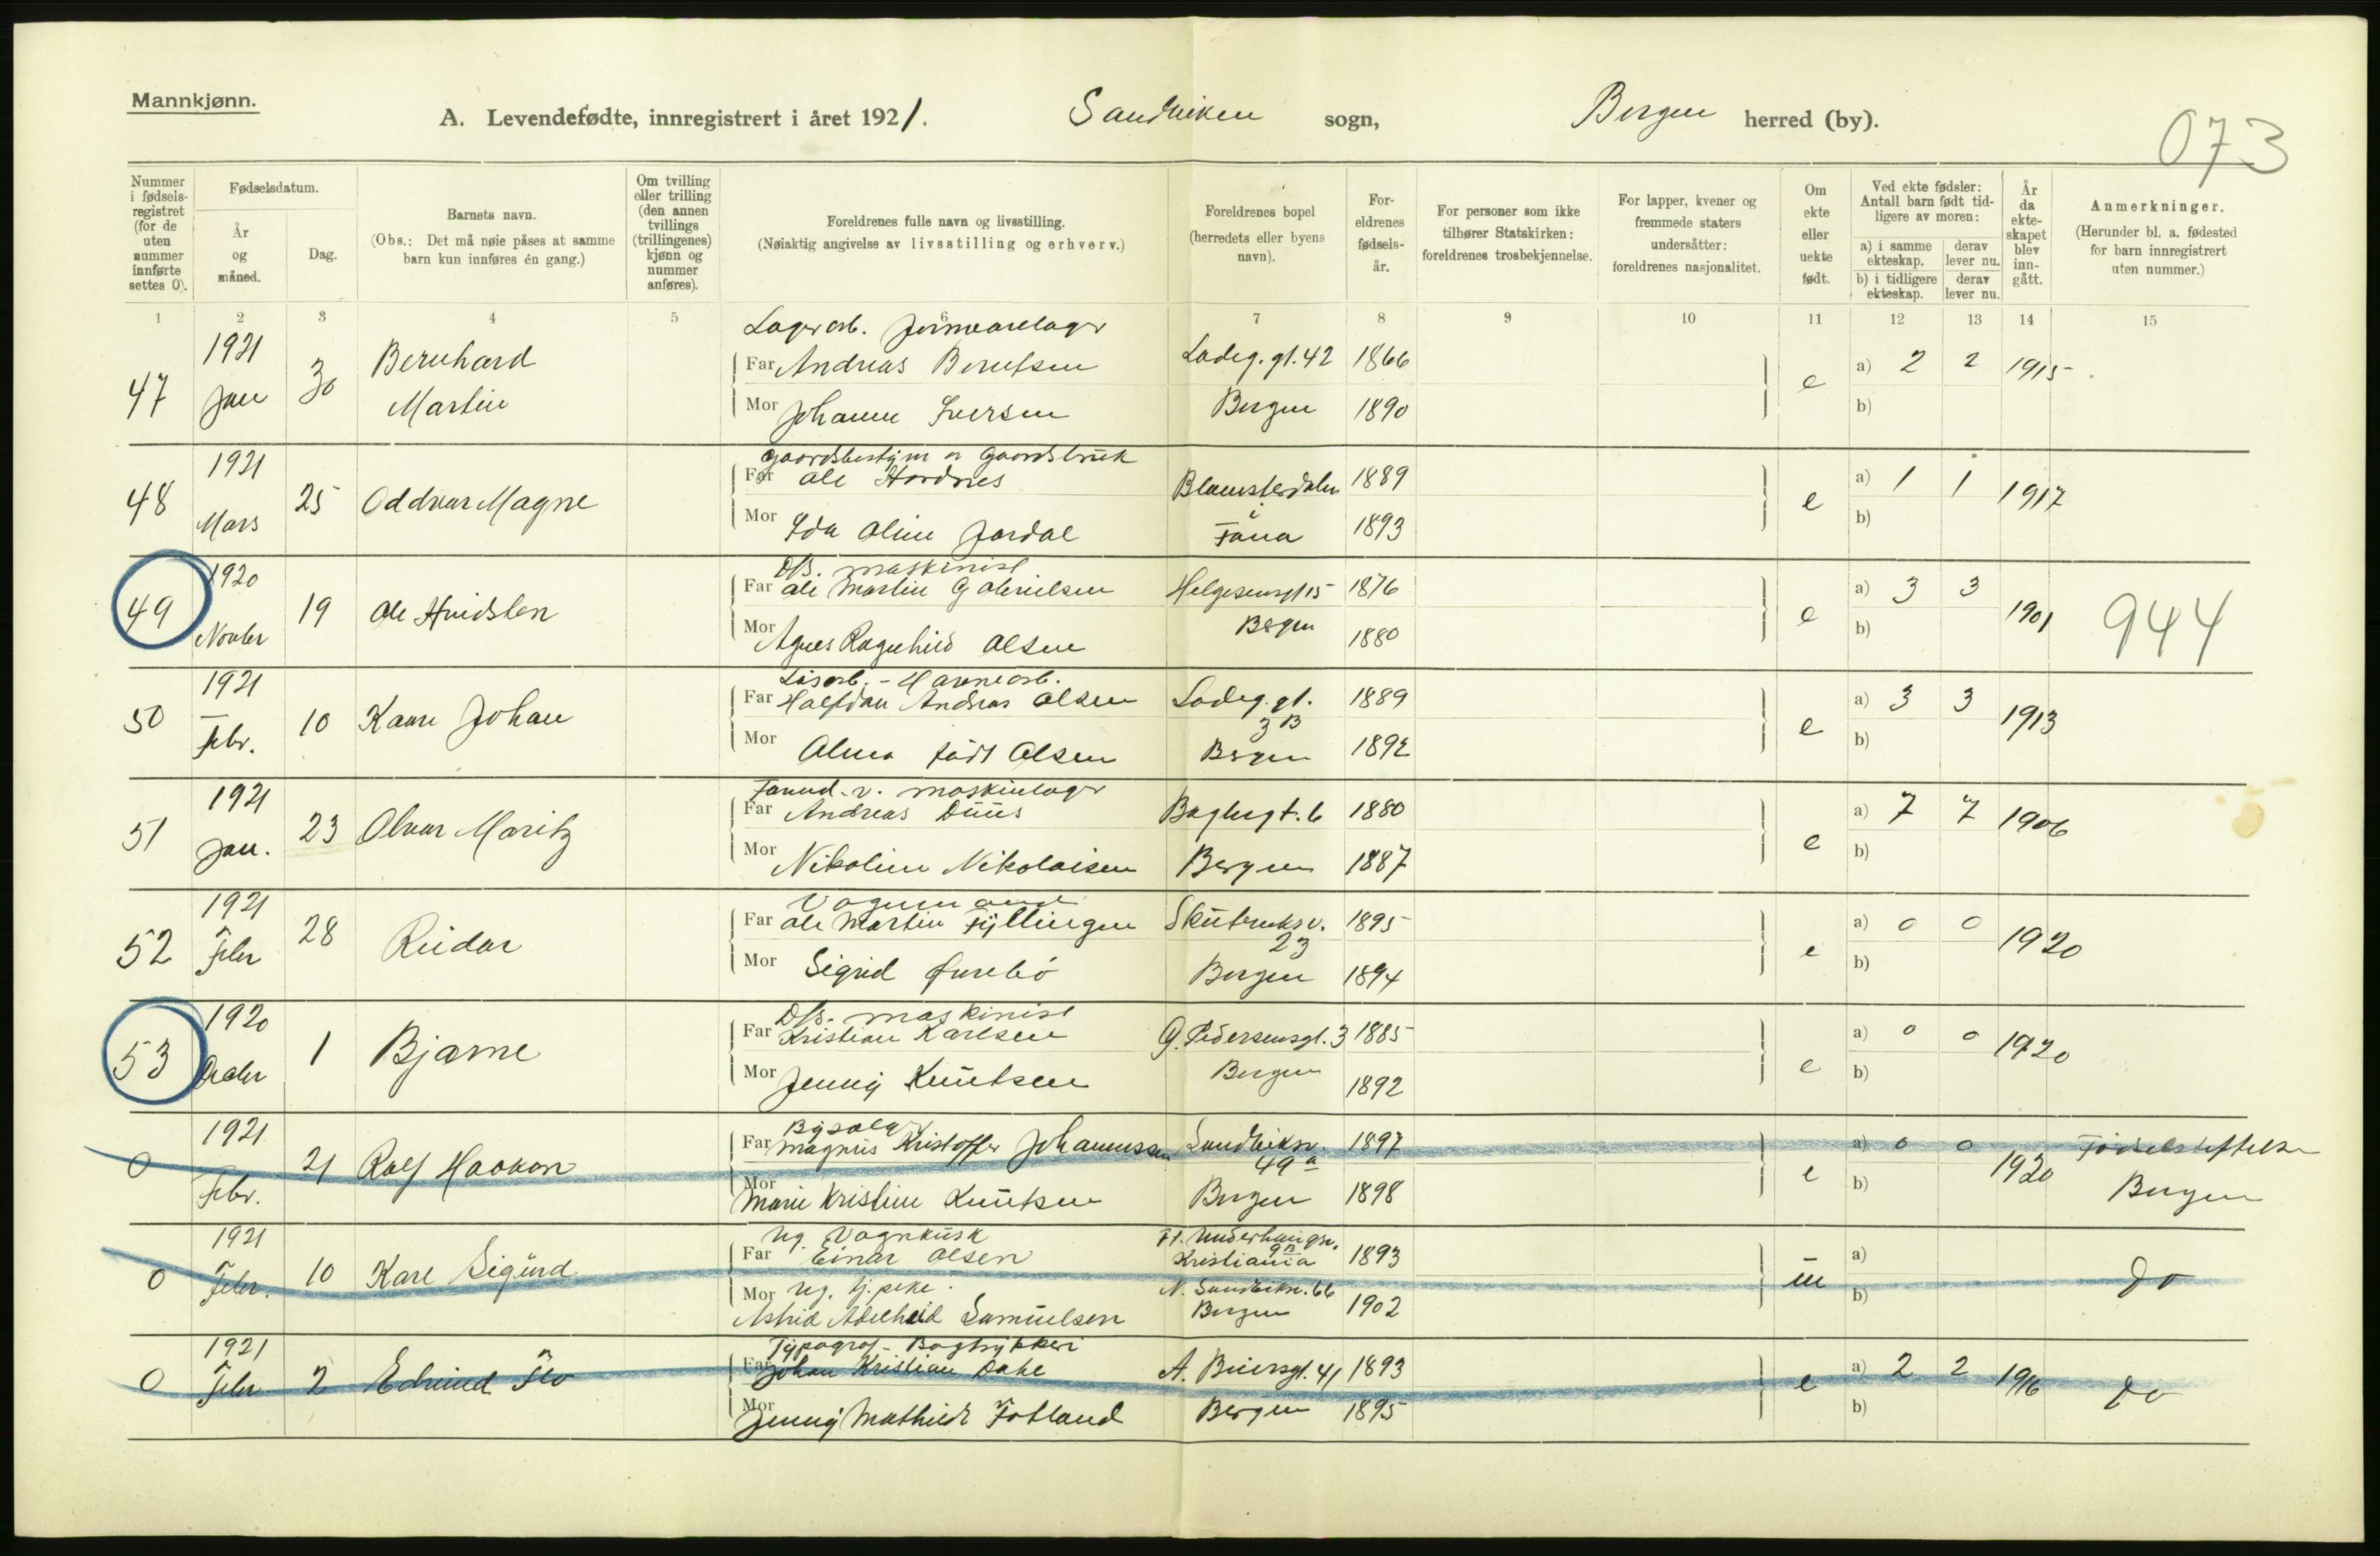 Mannkjønn.
A. Levendefødte, innregistrert i året 1921. Sandviken sogn, Bergen herred (by).
073
Nummer i fødsels-registret (for de uten nummer innførte settes 0).
Fødselsdatum.
År og måned.
Dag.
Barnets navn.
(Obs.: Det må nøie påses at samme barn kun innføres én gang.)
Om tvilling eller trilling (den annen tvillings (trillingenes) kjønn og nummer anføres).
Foreldrenes fulle navn og livsstilling.
(Nøiaktig angivelse av livsstilling og erhverv.)
Foreldrenes bopel (herredets eller byens navn).
For-eldrenes fødsels-år.
For personer som ikke tilhører Statskirken: foreldrenes trosbekjennelse.
For lapper, kvener og fremmede staters undersåtter: foreldrenes nasjonalitet.
Om ekte eller uekte født.
Ved ekte fødsler: Antall barn født tid-ligere av moren:
a) i samme ekteskap. derav lever nu.
b) i tidligere ekteskap. derav lever nu.
År da ekte-skapet blev inn-gått.
Anmerkninger.
(Herunder bl. a. fødested for barn innregistrert uten nummer.)
1 2 3 4 5 6 7 8 9 10 11 12 13 14 15
Lagerarb. Jernvarelager
47 1921 Jan 30 Bernhard Martin
Far Andreas Berntsen Ladeg.gt. 42 1866 e a) 2 2 1915
Mor Johanne Iversen Bergen 1890 b)
Gaardsbestyrer Gaardsbruk
48 1921 Mars 25 Oddvar Magne
Far Ole Hordnes Blomsterdalen 1889 e a) 1 1 1917
Mor Ida Oline Jordal i Fana 1893 b)
D/S. maskinist
49 1920 Novbr 19 Ole Hvidsten
Far Ole Martin Gabrielsen Helgesensgt 15 1876 e a) 3 3 1901 944
Mor Agnes Ragnhild Olsen Bergen 1880 b)
Løsarb. - Havnearb.
50 1921 Febr. 10 Kaare Johan
Far Halfdan Andreas Olsen Ladeg.gt. 3B 1889 e a) 3 3 1913
Mor Alma født Olsen Bergen 1892 b)
Formd. v. maskinlager
51 1921 Jan. 23 Alvar Moritz
Far Andreas Duus Baglergt. 6 1880 e a) 7 7 1906
Mor Nikoline Nikolaisen Bergen 1887 b)
Vognmand
52 1921 Febr 28 Reidar
Far Ole Martin Fyllingen Skuteviksv. 23 1895 e a) 0 0 1920
Mor Sigrid Furebø Bergen 1894 b)
D/S. maskinist
53 1920 Decbr 1 Bjarne
Far Kristian Karlsen G. Pedersensgt. 3 1885 e a) 0 0 1920
Mor Jenny Knutsen Bergen 1892 b)
Byselger
0 1921 Febr. 21 Rolf Haakon
Far Magnus Kristoffer Johannessen Sandviksv. 49a 1897 e a) 0 0 1920 Fødselsstiftelsen
Mor Marie Kristine Knutsen Bergen 1898 b) Bergen
Ug. Vognkusk
0 1921 Febr. 10 Karl Sigurd
Far Einar Olsen Kristiania 9B 1893 u a) do
Mor Ug. tj.pike N. Sandviksv. 66
Astrid Adelheid Samuelsen Bergen 1902 b)
Typograf - Bogtrykkeri
0 1921 Febr 2 Edmund Flo
Far Johan Kristian Dahl A. Beiersgt. 41 1893 e a) 2 2 1916 do
Mor Jenny Mathilde Fotland Bergen 1895 b)